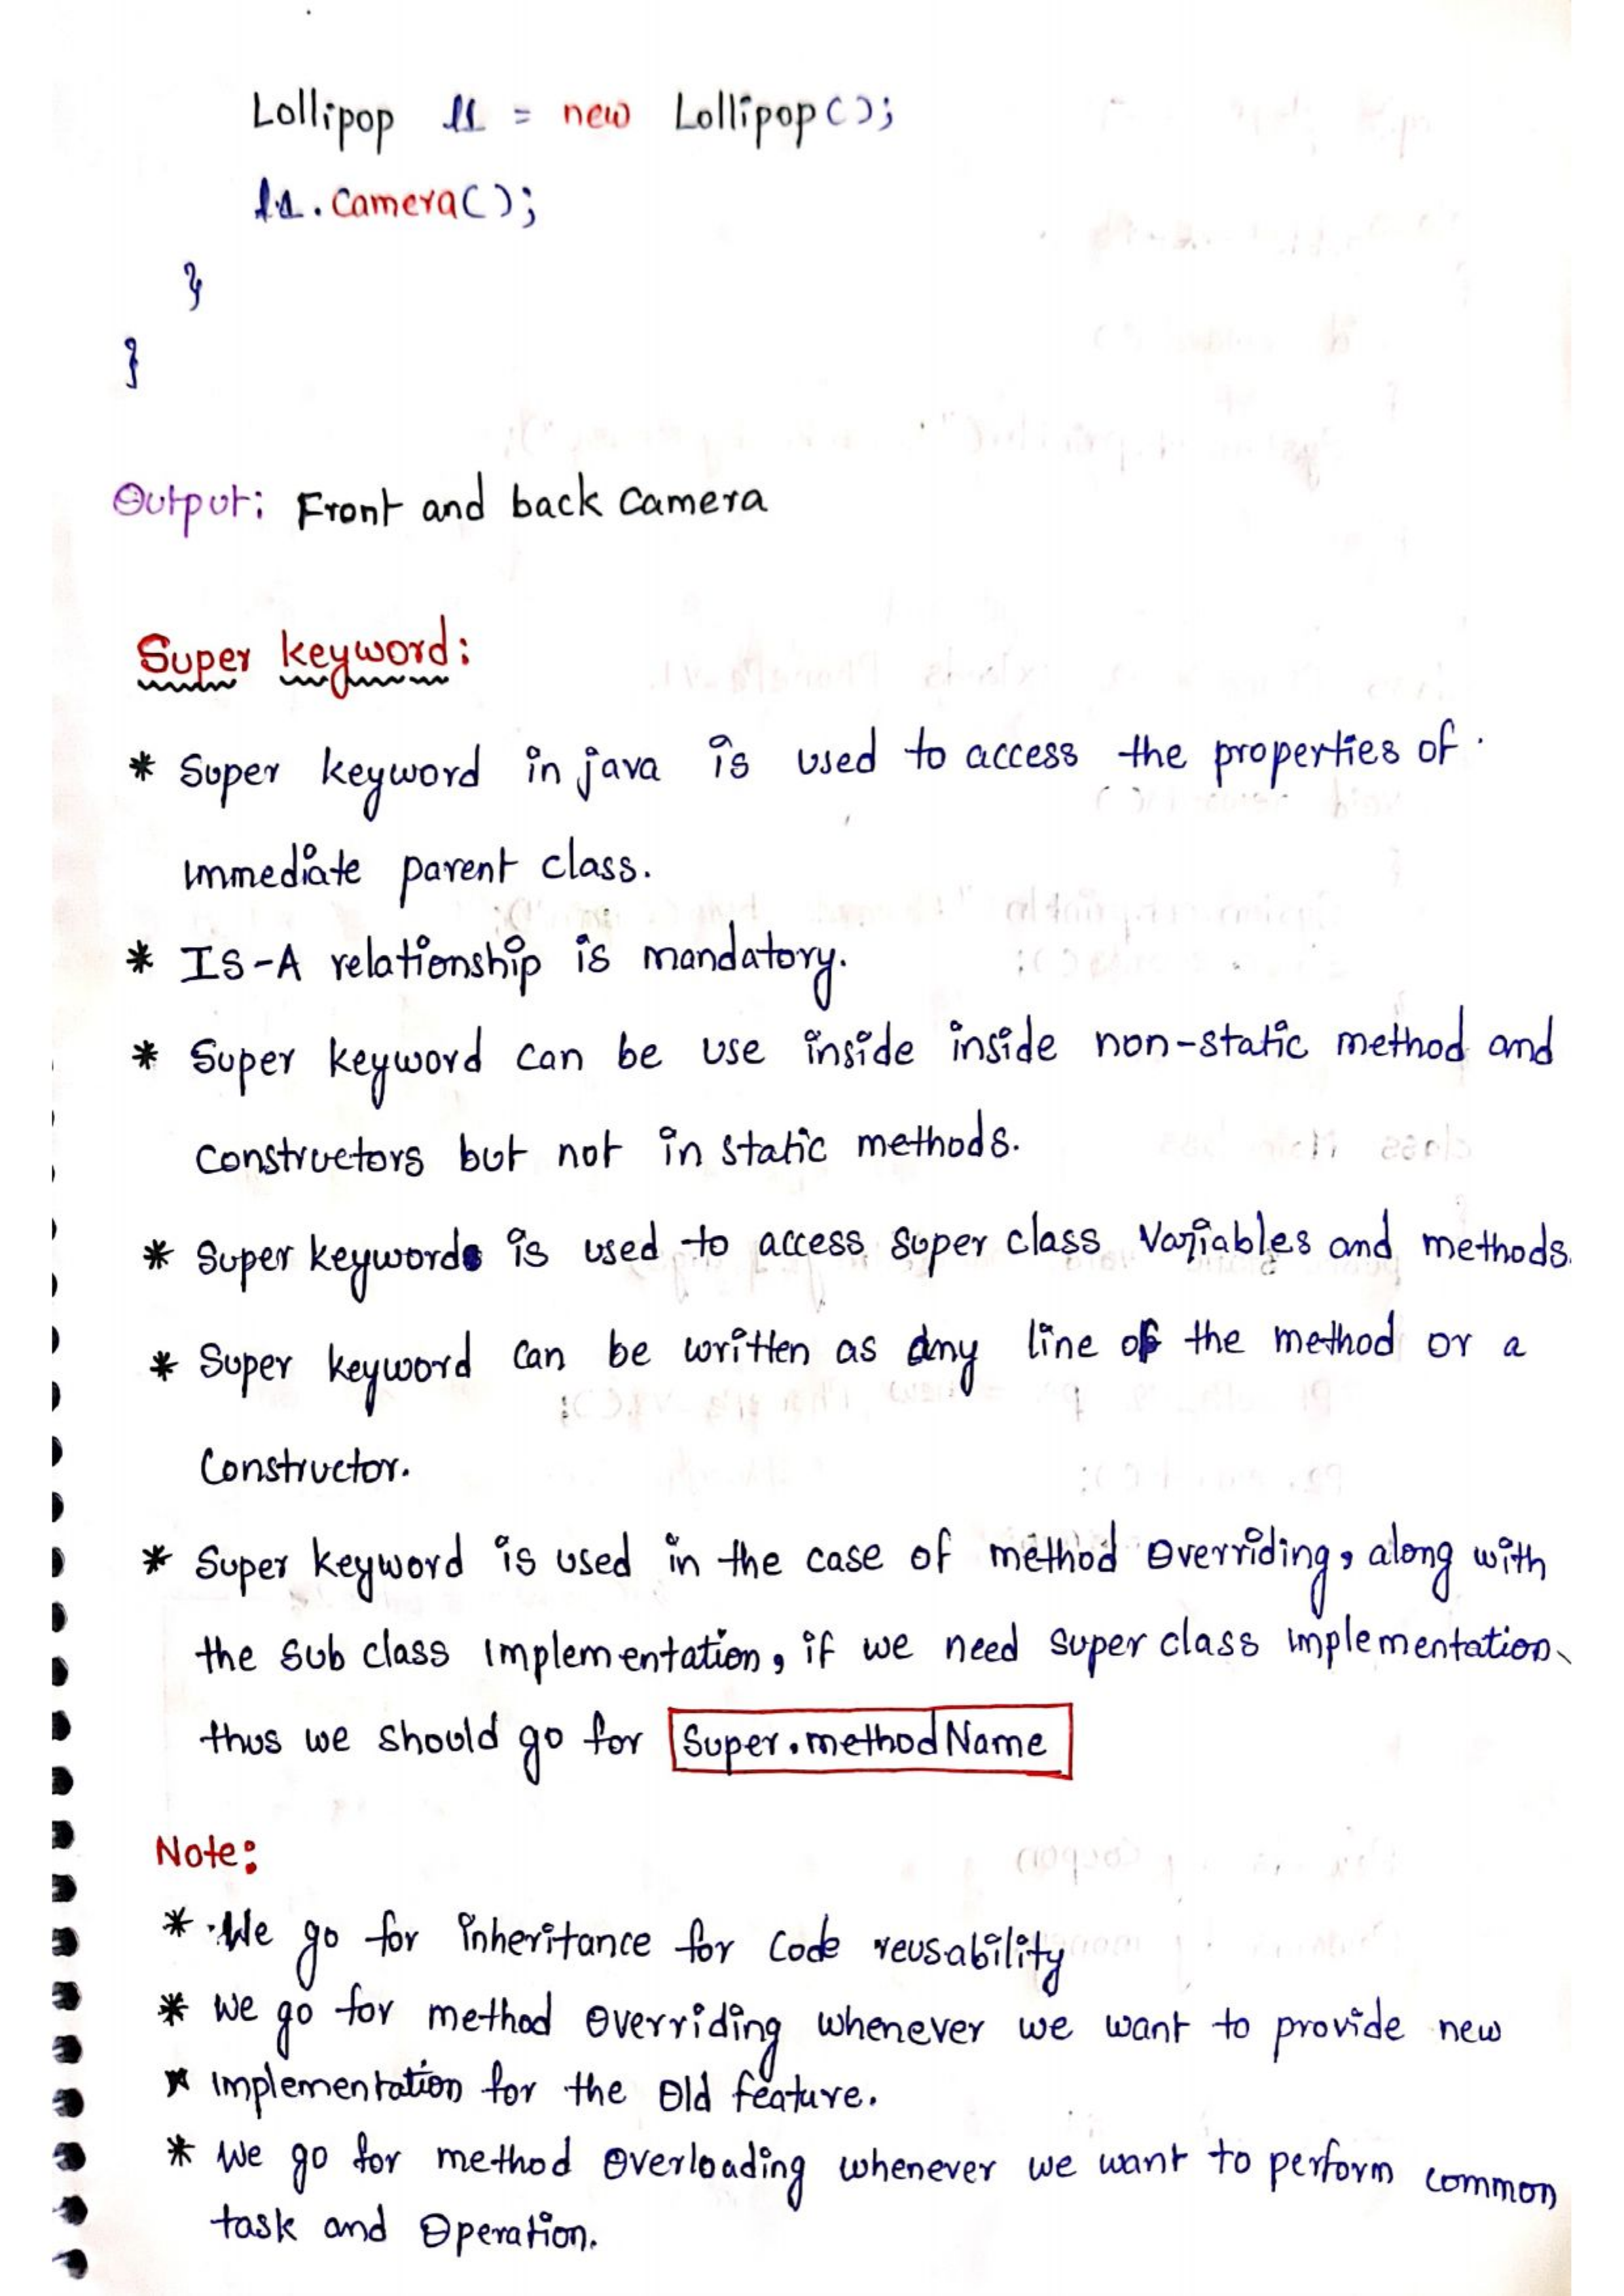 Lollipop l1 = new Lollipop();
l1.Camera();
}
}
Output: Front and back Camera
Super keyword:
* Super keyword in java is used to access the properties of
immediate parent class.
* IS-A relationship is mandatory.
* Super keyword can be use inside inside non-static method and
constructors but not in static methods.
* Super keyword is used to access super class Variables and methods.
* Super keyword can be written as any line of the method or a
Constructor.
* Super keyword is used in the case of method Overriding, along with
the sub class implementation, if we need super class implementation
thus we should go for Super.methodName
Note:
* We go for inheritance for code reusability
* We go for method Overriding whenever we want to provide new
* implementation for the Old feature.
* We go for method Overloading whenever we want to perform common
task and Operation.